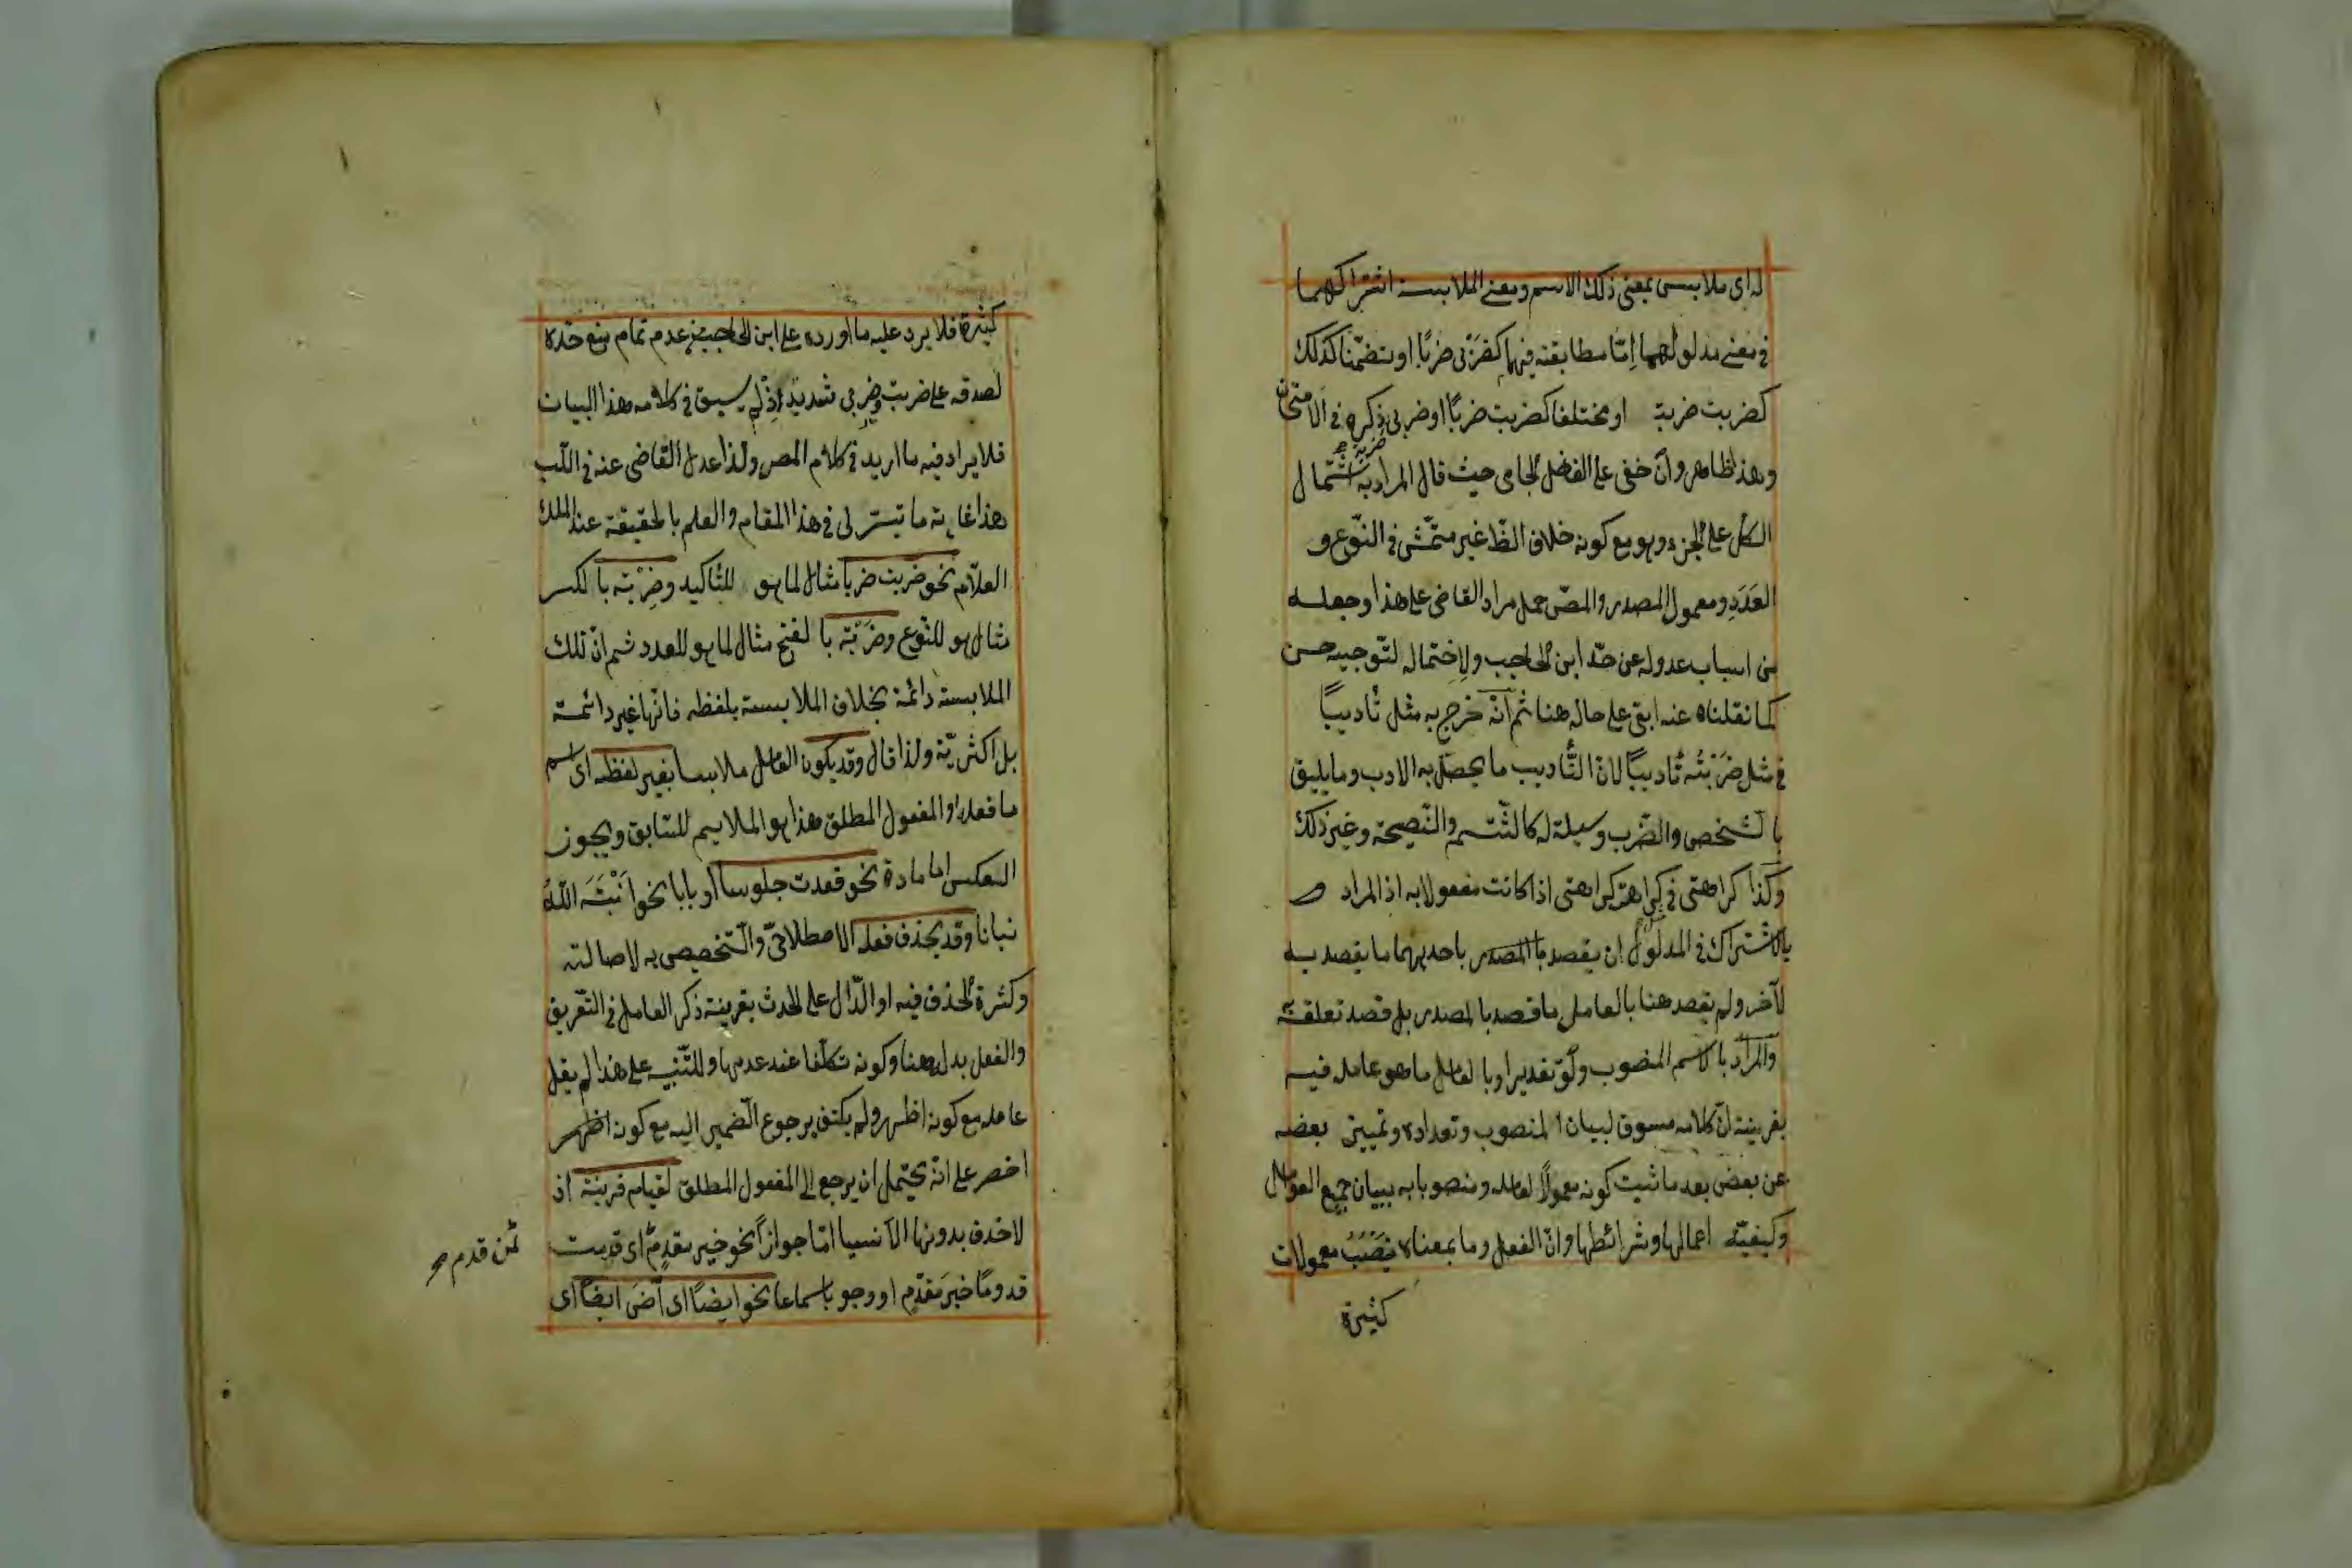 له اى ملابس بمعنى ذلك الاسم ومعنى الملابسة اشتراكهما
فى معنى مدلولهما إمّا مطابقته فيهما كضَرْبى ضربًا او تضمّنا كذلك
كضربت ضربة او مختلفا كضربت ضربًا او ضربى ضربة ذكره فى الامتحان
وهذا ظاهر وان خفى على الفاضل الجامى حيث قال المراد به اشتمال
الكل على الجزء وهو مع كونه خلاف الظ غير متمشّى فى النّوع و
العَدَدِ ومعمول المصدر والمصّ حمل مراد القاضى على هذا وجعله
من اسباب عدوله عن حدّ ابن الحاجب ولاحتماله لتوجيه حسن
كما نقلناه عنه ابقى على حاله هنا ثم انّه خرج به مثل تأديبًا
فى مثل ضَرَبْتُه تأديبًا لانّ التّأديب ما يحصل به الادب وما يليق
بالشخص والضّرب وسيلة له كالشّتم والنّصيحة وغير ذلك
وكذا كراهتى فى كرهت كراهتى اذا كانت مفعولا به اذ المراد
بالاشتراك فى المدلول ان يقصد بالمصدر باحديهما ما يقصد به
لآخر ولم يقصد هنا بالعامل ما قصد بالمصدر بل قصد تعلقه
والمراد بالاسم المنصوب ولو تقديرا وبالعامل ما هو عامل فيه
بقرينة انّ كلامه مسوق لبيان المنصوب وتعداده وتمييز بعضه
عن بعض بعد ما ثبت كونه معمولًا لعامله ومنصوبا به ببيان جميع العوامل
وكيفيّة اعمالها وشرائطها وانّ الفعل وما بمعناه يَنصِبُ معمولات
كثيرة
كثيرة فلا يرد عليه ما اورده على ابن الحاجب من عدم تمام منع حدّه
لصدقه على ضربت وضربى شديد اذ لم يسبق فى كلامه هذا البيان
فلا يراد فيه ما اريد فى كلام المص ولذا عدل القاضى عنه فى اللّب
هذا غاية ما تيسّر لى فى هذا المقام والعلم بالحقيقة عند الملك
العلّام نحو ضربت ضربا مثال لما هو للتّأكيد وضِرْبة بالكسر
مثال هو للنّوع وضَرْبة بالفتح مثال لما هو للعدد ثم انّ تلك
الملابسة دائمة بخلاف الملابسة بلفظه فانّها غير دائمة
بل اكثريّة ولذا قال وقد يكون العامل ملابسا بغير لفظه اى اسم
ما فعله او المفعول المطلق هذا هو الملايم للسّابق ويجوز
العكس اما مادة نحو قعدت جلوسا او بابا نحو اَنْبَتَهُ اللّهُ
نباتا وقد يحذف فعله الاصطلاحىّ والتّخصيص به لاصالته
وكثرة الحذف فيه او الدّال على الحدث بقرينة ذكر العامل فى التّعريف
والفعل بدله هنا وكونه تكلّفا عند عدمها وللتّنبيه على هذا لم يقل
عامله مع كونه اظهر ولم يكتف برجوع الضّمير اليه مع كونه اظهر
اخصر على انّه يحتمل ان يرجع الى المفعول المطلق لقيام قرينة اذ
لا حذف بدونها الّا نسيا امّا جوازًا نحو خير مقدم اى قدمت
لمن قدم صح
قدومًا خيرَ مقدم او وجوبا سماعا نحو ايضًا اى آضَ ايضًا اى